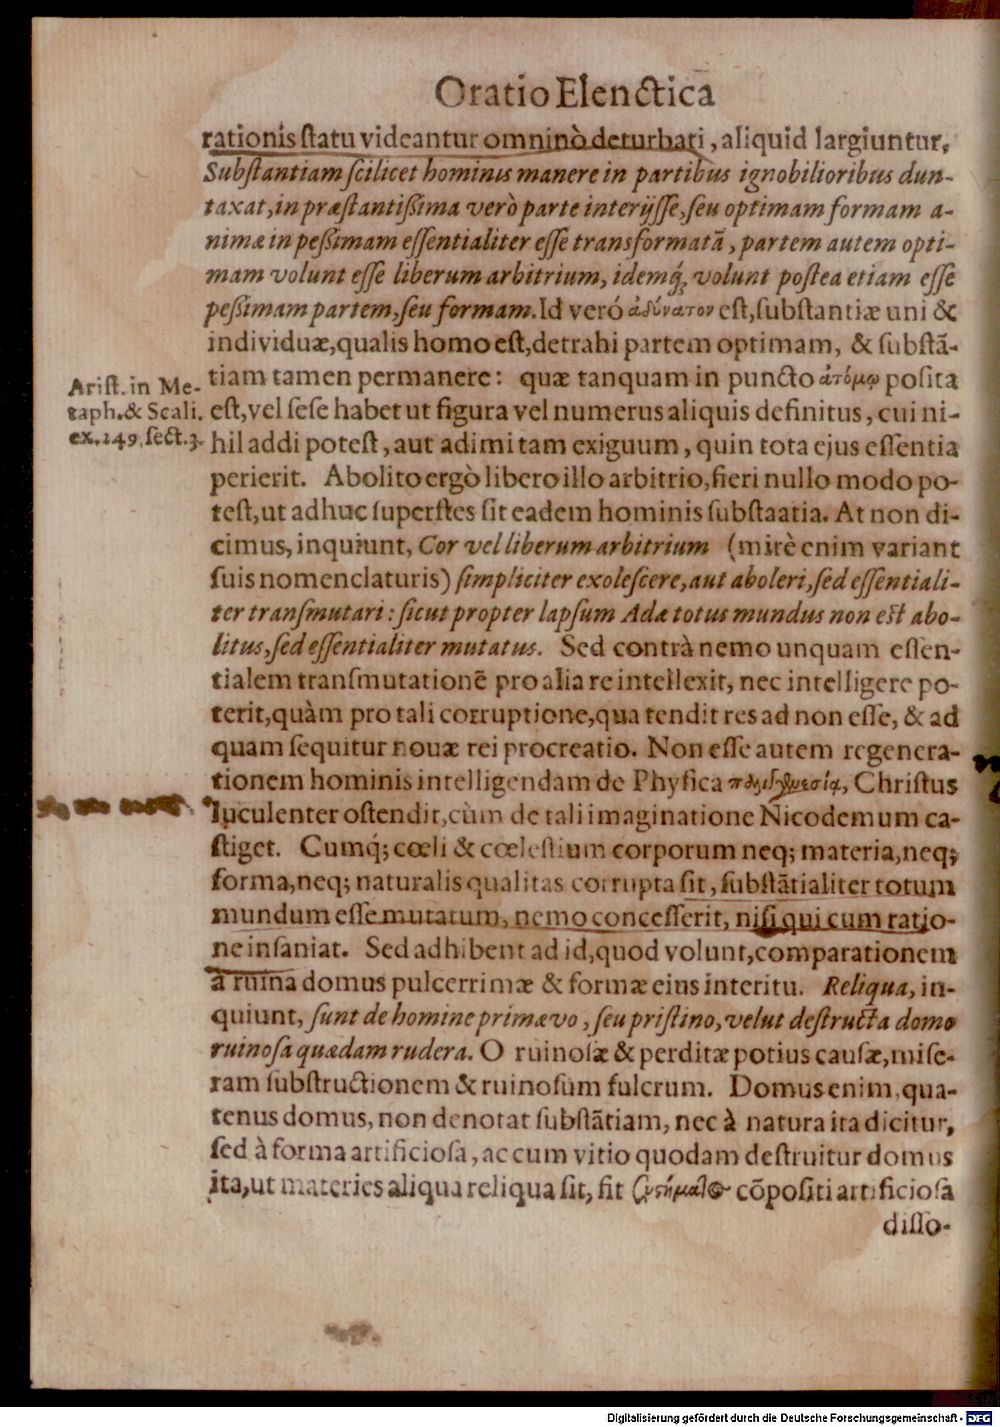 Oratio Elenctica
rationis ſtatu videantur omninò deturbati, aliquid largiuntur,
Subſtantiam ſcilicet hominis manere in partibus ignobilioribus dun-
taxat, in præſtantißima verò parte interijſſe, ſeu optimam formam a-
nimæ in peßimam eſſentialiter eſſe transformatā, partem autem opti-
mam volunt eſſe liberum arbitrium, idemq́; volunt poſtea etiam eſſe
peßimam partem, ſeu formam. Id veró ἀδύνατον eſt, ſubſtantiæ uni &
individuæ, qualis homo eſt, detrahi partem optimam, & ſubſtā-
tiam tamen permanere: quæ tanquam in puncto ἀτόμῳ poſita
eſt, vel ſeſe habet ut figura vel numerus aliquis definitus, cui ni-
hil addi poteſt, aut adimi tam exiguum, quin tota ejus eſſentia
perierit. Abolito ergò libero illo arbitrio, fieri nullo modo po-
teſt, ut adhuc ſuperſtes ſit eadem hominis ſubſtaatia. At non di-
cimus, inquiunt, Cor vel liberum arbitrium (mirè enim variant
ſuis nomenclaturis) ſimpliciter exoleſcere, aut aboleri, ſed eſſentiali-
ter tranſmutari: ſicut propter lapſum Adæ totus mundus non eſt abo-
litus, ſed eſſentialiter mutatus. Sed contrà nemo unquam eſſen-
tialem tranſmutationē pro alia re intellexit, nec intelligere po-
terit, quàm pro tali corruptione, qua tendit res ad non eſſe, & ad
quam ſequitur novæ rei procreatio. Non eſſe autem regenera-
tionem hominis intelligendam de Phyſica παλιγγενεσίᾳ, Chriſtus
luculenter oſtendit, cùm de tali imaginatione Nicodemum ca-
ſtiget. Cumq́; cœli & cœleſtium corporum neq; materia, neq;
forma, neq; naturalis qualitas corrupta ſit, ſubſtātialiter totum
mundum eſſe mutatum, nemo conceſſerit, niſi qui cum ratio-
ne inſaniat. Sed adhibent ad id, quod volunt, comparationem
à ruina domus pulcerrimæ & formæ eius interitu. Reliqua, in-
quiunt, ſunt de homine primævo, ſeu priſtino, velut deſtructa domo
ruinoſa quædam rudera. O ruinoſæ & perditæ potius cauſæ, miſe-
ram ſubſtructionem & ruinoſum fulcrum. Domus enim, qua-
tenus domus, non denotat ſubſtātiam, nec à natura ita dicitur,
ſed à forma artificioſa, ac cum vitio quodam deſtruitur domus
ita, ut materies aliqua reliqua ſit, fit συστήματος cōpoſiti artificioſa
diſſo-
Ariſt. in Me-
taph. & Scali.
ex. 149. ſect. 3.
Digitalisierung gefördert durch die Deutsche Forschungsgemeinschaft - DFG